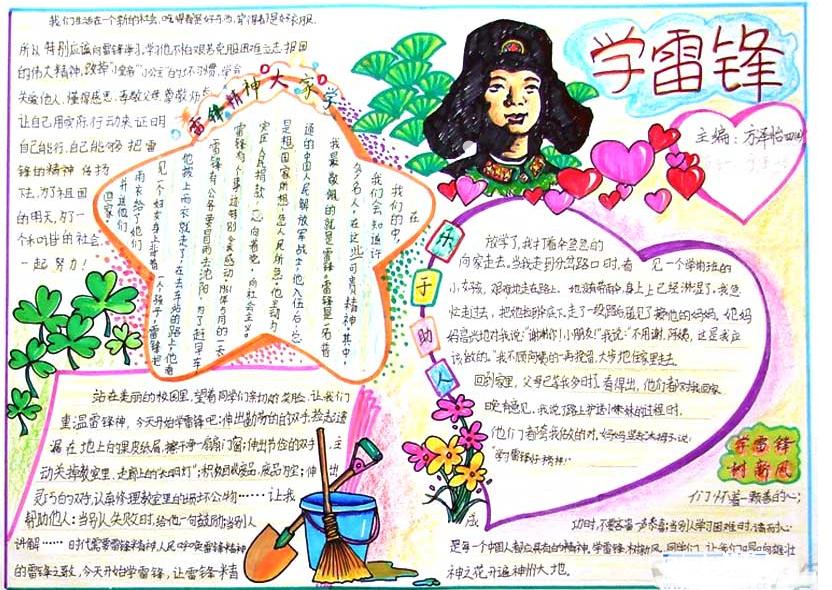 学雷锋
主编：方泽怡
我们生活在一个新的社会，吃得都是好东西，穿得都是好衣服。
所以特别应该向雷锋学习，学习他不怕艰苦克服困难立志报国
的伟大精神，改掉"小皇帝""小公主"的坏习惯，学会
关爱他人，懂得感恩，孝敬父母
让自己用实际行动来证明
自己能行，自己能够把雷
锋的精神传扬
下去，为了祖国
的明天，为了一
个和谐的社会
一起努力！
雷锋精神大家学
在
我们的中，
我们会知道许
多名人，在这些可贵精神，其中，
我最敬佩的就是雷锋，雷锋是一名普
通的中国人民解放军战士，他入伍后，总
是想国家所想，急人民所急，他主动为
灾区人民捐款
雷锋有个事迹特别令我感动，那年5月的一天
雷锋有公务要冒雨去沈阳，为了赶早车
他披上雨衣就走了，在去车站的路上，他看
见一个妇女身上背着一个孩子，雷锋把
雨衣给了他们
并送他们
回家。
乐于助人
放学了，我打着伞急急的
向家走去，当我走到分岔路口时，看见一个学前班的
小女孩，艰难地走在路上，她没带雨伞，身上已经淋湿了，我急
忙走过去，把她拉到伞底下，走了一段路后，遇见了接她的妈妈，她妈
妈高兴地对我说："谢谢你！小朋友！"我说："不用谢，阿姨，这是我应
该做的。"我不顾阿姨的一再挽留，大步地往家里走去。
回到家里，父母已等我多时，看得出，他们都对我回家
晚有意见，我说了路上护送小妹妹的过程时，
他们都夸我做的对，妈妈竖起大拇指说：
"学雷锋好精神！"
学雷锋
树新风
站在美丽的校园里，望着同学们亲切的笑脸，让我们
重温雷锋，今天开始学雷锋吧；伸出勤劳的双手，捡起遗
漏在地上的果皮纸屑，擦干每一扇门窗；伸出节俭的双手，主
动关掉教室里、走廊上的"长明灯"；积极回收废品，废品为宝；伸出
灵巧的双手，认真修理教室里的损坏公物……让我
们怀着一颗善的心；
帮助他人：当别人失败时，给他一句鼓励；当别人成
功时，不要吝啬；当别人学习困难时，请耐心
讲解……时代需要雷锋精神，人民呼唤雷锋精神
是每一个中国人都应具有的精神，学雷锋，树新风，同学们，让我们唱响雄壮
的雷锋之歌，今天开始学雷锋，让雷锋精
神之花开遍神州大地。